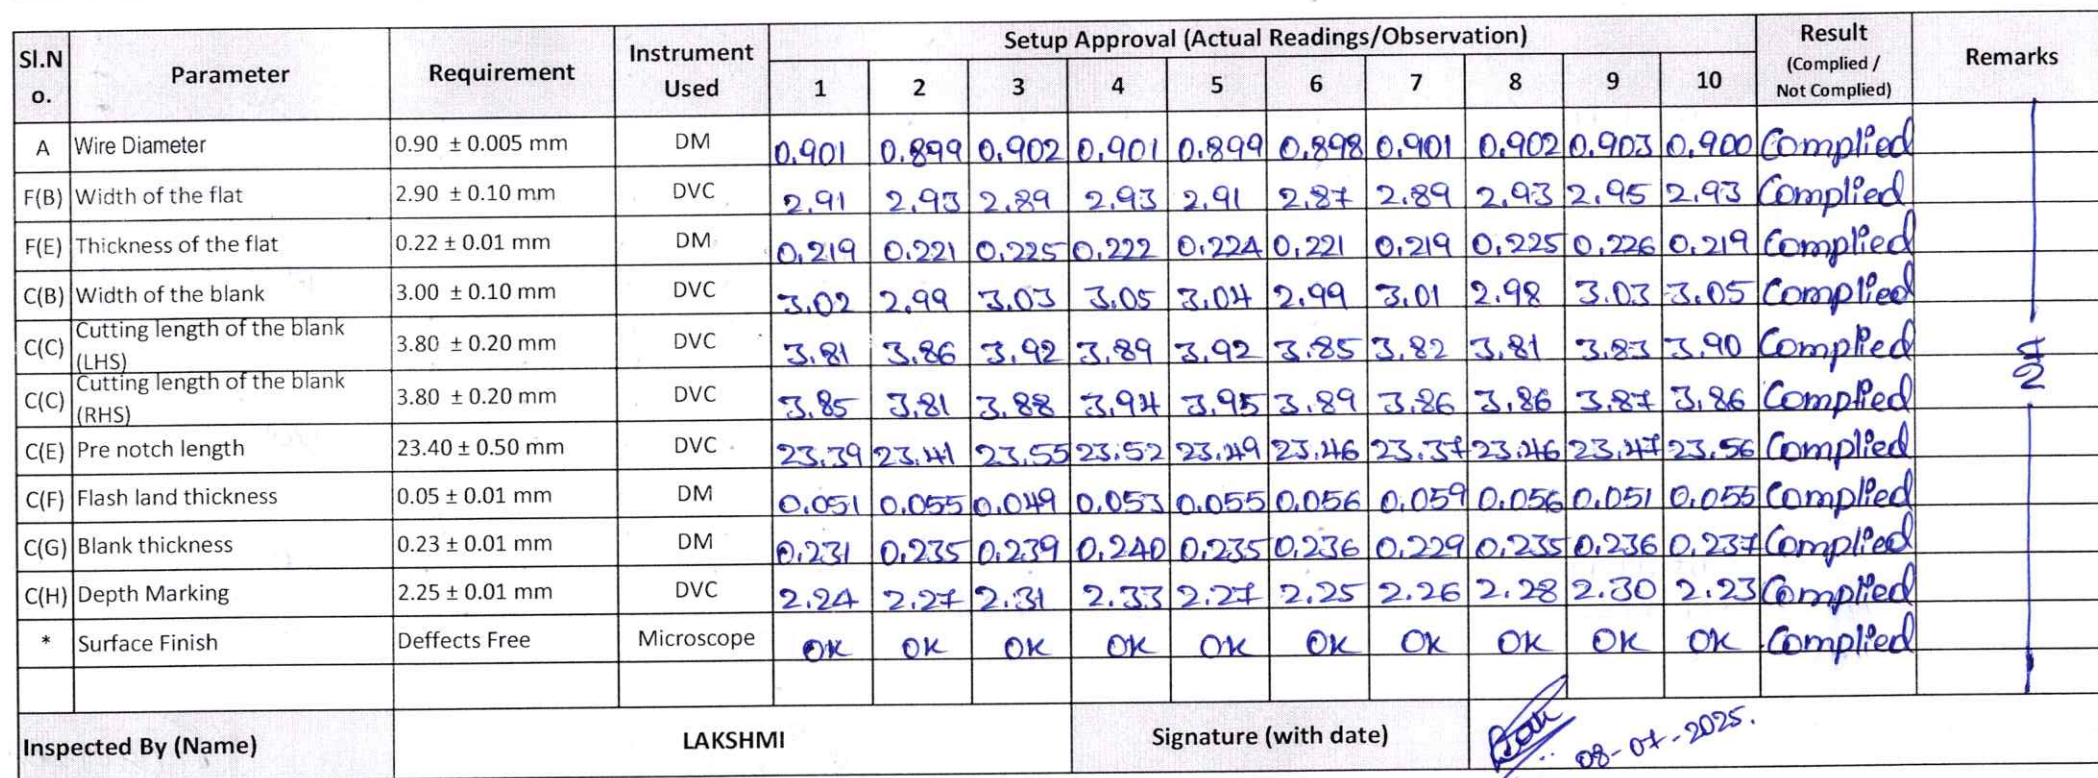 Sl.No. Parameter Requirement Instrument Used Setup Approval (Actual Readings/Observation) Result (Complied / Not Complied) Remarks
1 2 3 4 5 6 7 8 9 10
A Wire Diameter 0.90 ± 0.005 mm DM 0.901 0.899 0.902 0.901 0.899 0.898 0.901 0.902 0.903 0.900 Complied
F(B) Width of the flat 2.90 ± 0.10 mm DVC 2.91 2.93 2.89 2.93 2.91 2.87 2.89 2.93 2.95 2.93 Complied
F(E) Thickness of the flat 0.22 ± 0.01 mm DM 0.219 0.221 0.225 0.222 0.224 0.221 0.219 0.225 0.226 0.219 Complied
C(B) Width of the blank 3.00 ± 0.10 mm DVC 3.02 2.99 3.03 3.05 3.04 2.99 3.01 2.98 3.03 3.05 Complied
C(C) Cutting length of the blank (LHS) 3.80 ± 0.20 mm DVC 3.81 3.86 3.92 3.89 3.92 3.85 3.82 3.81 3.83 3.90 Complied
C(C) Cutting length of the blank (RHS) 3.80 ± 0.20 mm DVC 3.85 3.81 3.88 3.94 3.95 3.89 3.86 3.86 3.87 3.86 Complied
C(E) Pre notch length 23.40 ± 0.50 mm DVC 23.39 23.41 23.55 23.52 23.49 23.46 23.37 23.46 23.47 23.56 Complied
C(F) Flash land thickness 0.05 ± 0.01 mm DM 0.051 0.055 0.049 0.053 0.055 0.056 0.059 0.056 0.051 0.055 Complied
C(G) Blank thickness 0.23 ± 0.01 mm DM 0.231 0.235 0.239 0.240 0.235 0.236 0.229 0.235 0.236 0.237 Complied
C(H) Depth Marking 2.25 ± 0.01 mm DVC 2.24 2.27 2.31 2.33 2.27 2.25 2.26 2.28 2.30 2.23 Complied
* Surface Finish Deffects Free Microscope OK OK OK OK OK OK OK OK OK OK Complied
Inspected By (Name) LAKSHMI Signature (with date) 08-07-2025.